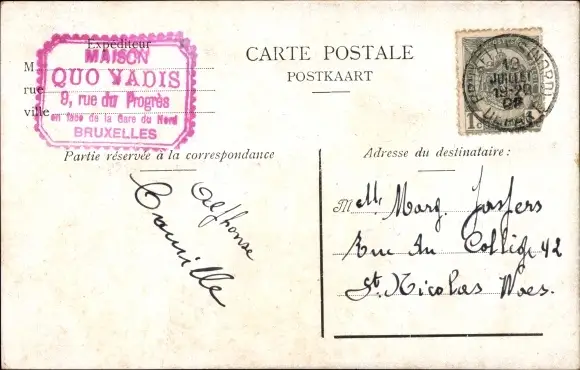 Expéditeur
M
rue
ville
MAISON
QUO VADIS
9, rue du Progrès
en face de la Gare du Nord
BRUXELLES
CARTE POSTALE
POSTKAART
(NORD)
JUILLET
Partie réservée à la correspondance
Adresse du destinataire :
Alphonse
Camille
Mlle Marg. Jaspers
Rue du Collège 42
St. Nicolas Waes.